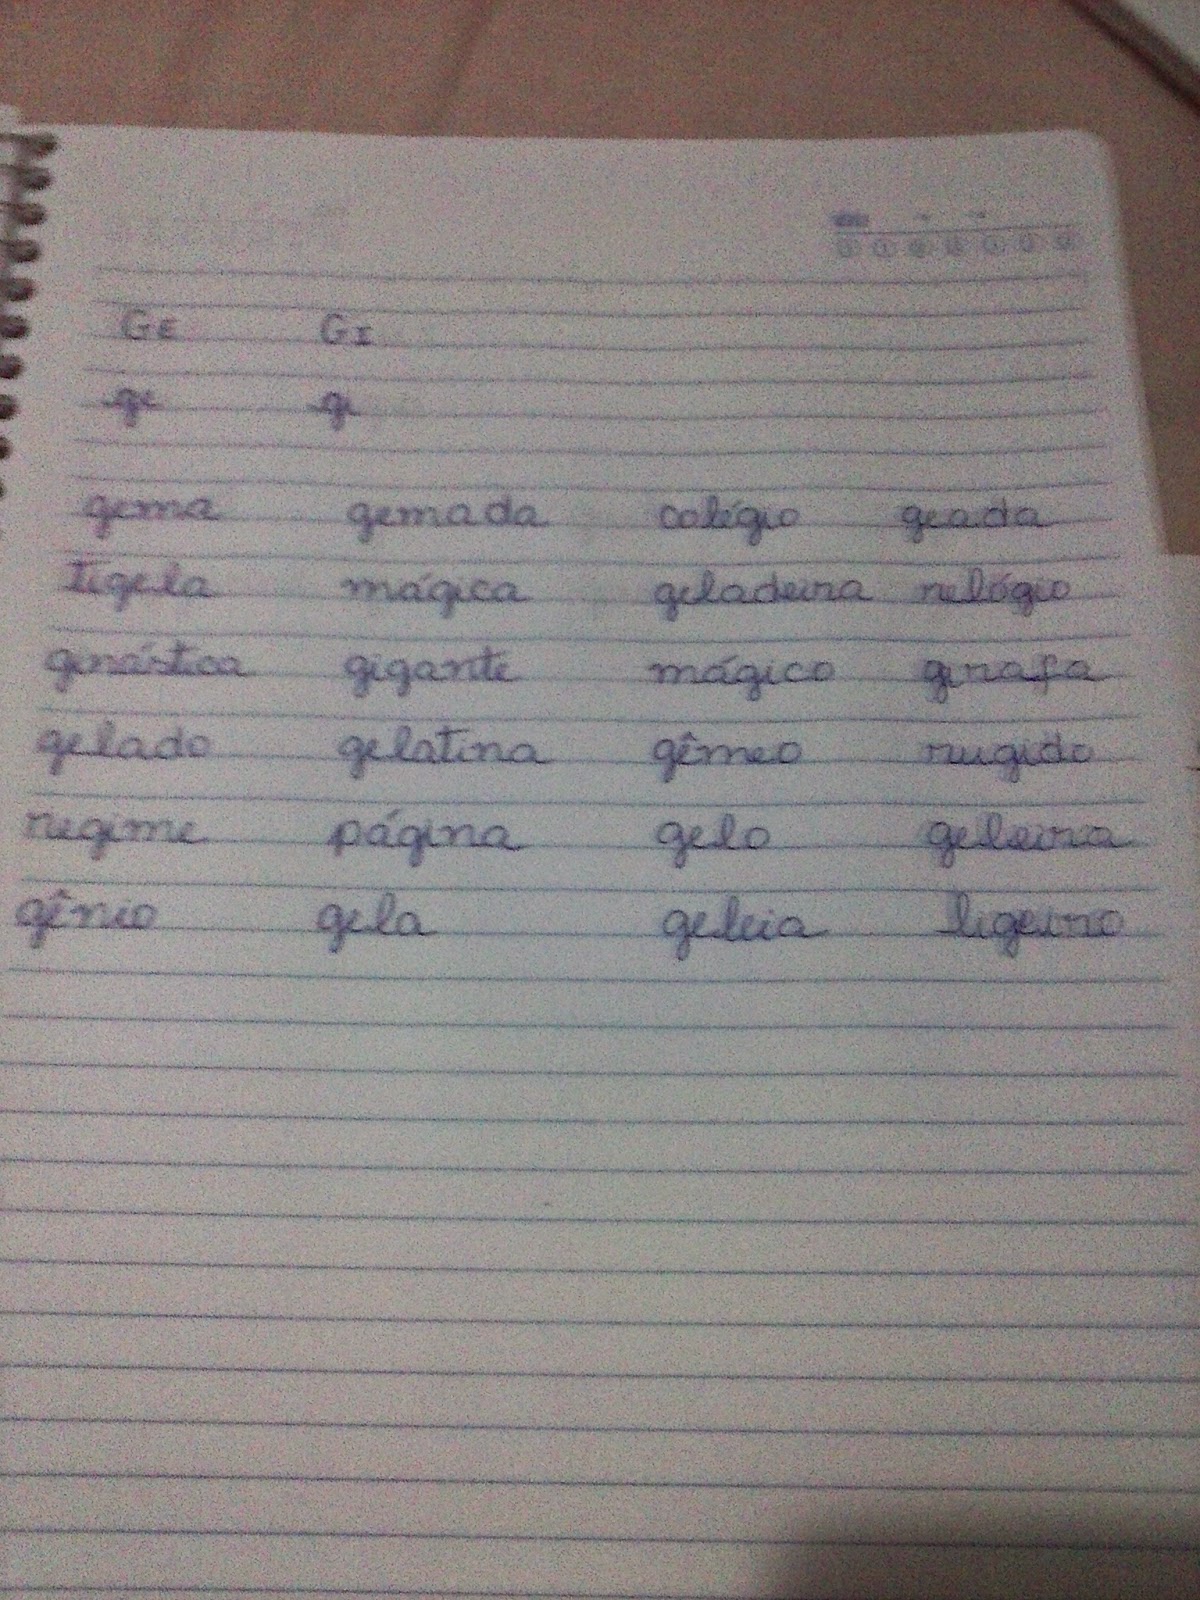 GE GI
ge gi
gema gemada colégio geada
tigela mágica geladeira relógio
ginástica gigante mágico girafa
gelado gelatina gêmeo rugido
regime página gelo geleira
gênio gela geleia ligeiro